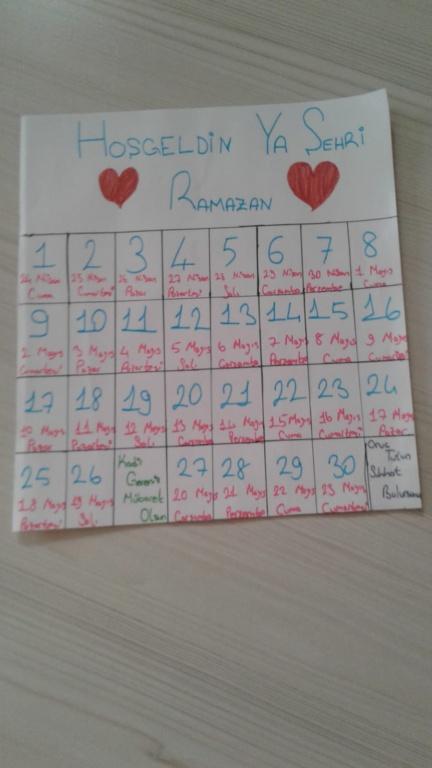 HOŞGELDİN YA ŞEHRİ
RAMAZAN
1 2 3 4 5 6 7 8
24 Nisan 25 Nisan 26 Nisan 27 Nisan 28 Nisan 29 Nisan 30 Nisan 1 Mayıs
Cuma Cumartesi Pazar Pazartesi Salı Çarşamba Perşembe Cuma
9 10 11 12 13 14 15 16
2 Mayıs 3 Mayıs 4 Mayıs 5 Mayıs 6 Mayıs 7 Mayıs 8 Mayıs 9 Mayıs
Cumartesi Pazar Pazartesi Salı Çarşamba Perşembe Cuma Cumartesi
17 18 19 20 21 22 23 24
10 Mayıs 11 Mayıs 12 Mayıs 13 Mayıs 14 Mayıs 15 Mayıs 16 Mayıs 17 Mayıs
Pazar Pazartesi Salı Çarşamba Perşembe Cuma Cumartesi Pazar
25 26 27 28 29 30
18 Mayıs 19 Mayıs 20 Mayıs 21 Mayıs 22 Mayıs 23 Mayıs
Pazartesi Salı Çarşamba Perşembe Cuma Cumartesi
Kadir
Geceniz
Mübarek
Olsun
Oruç
Tutun
Sıhhat
Bulunuz